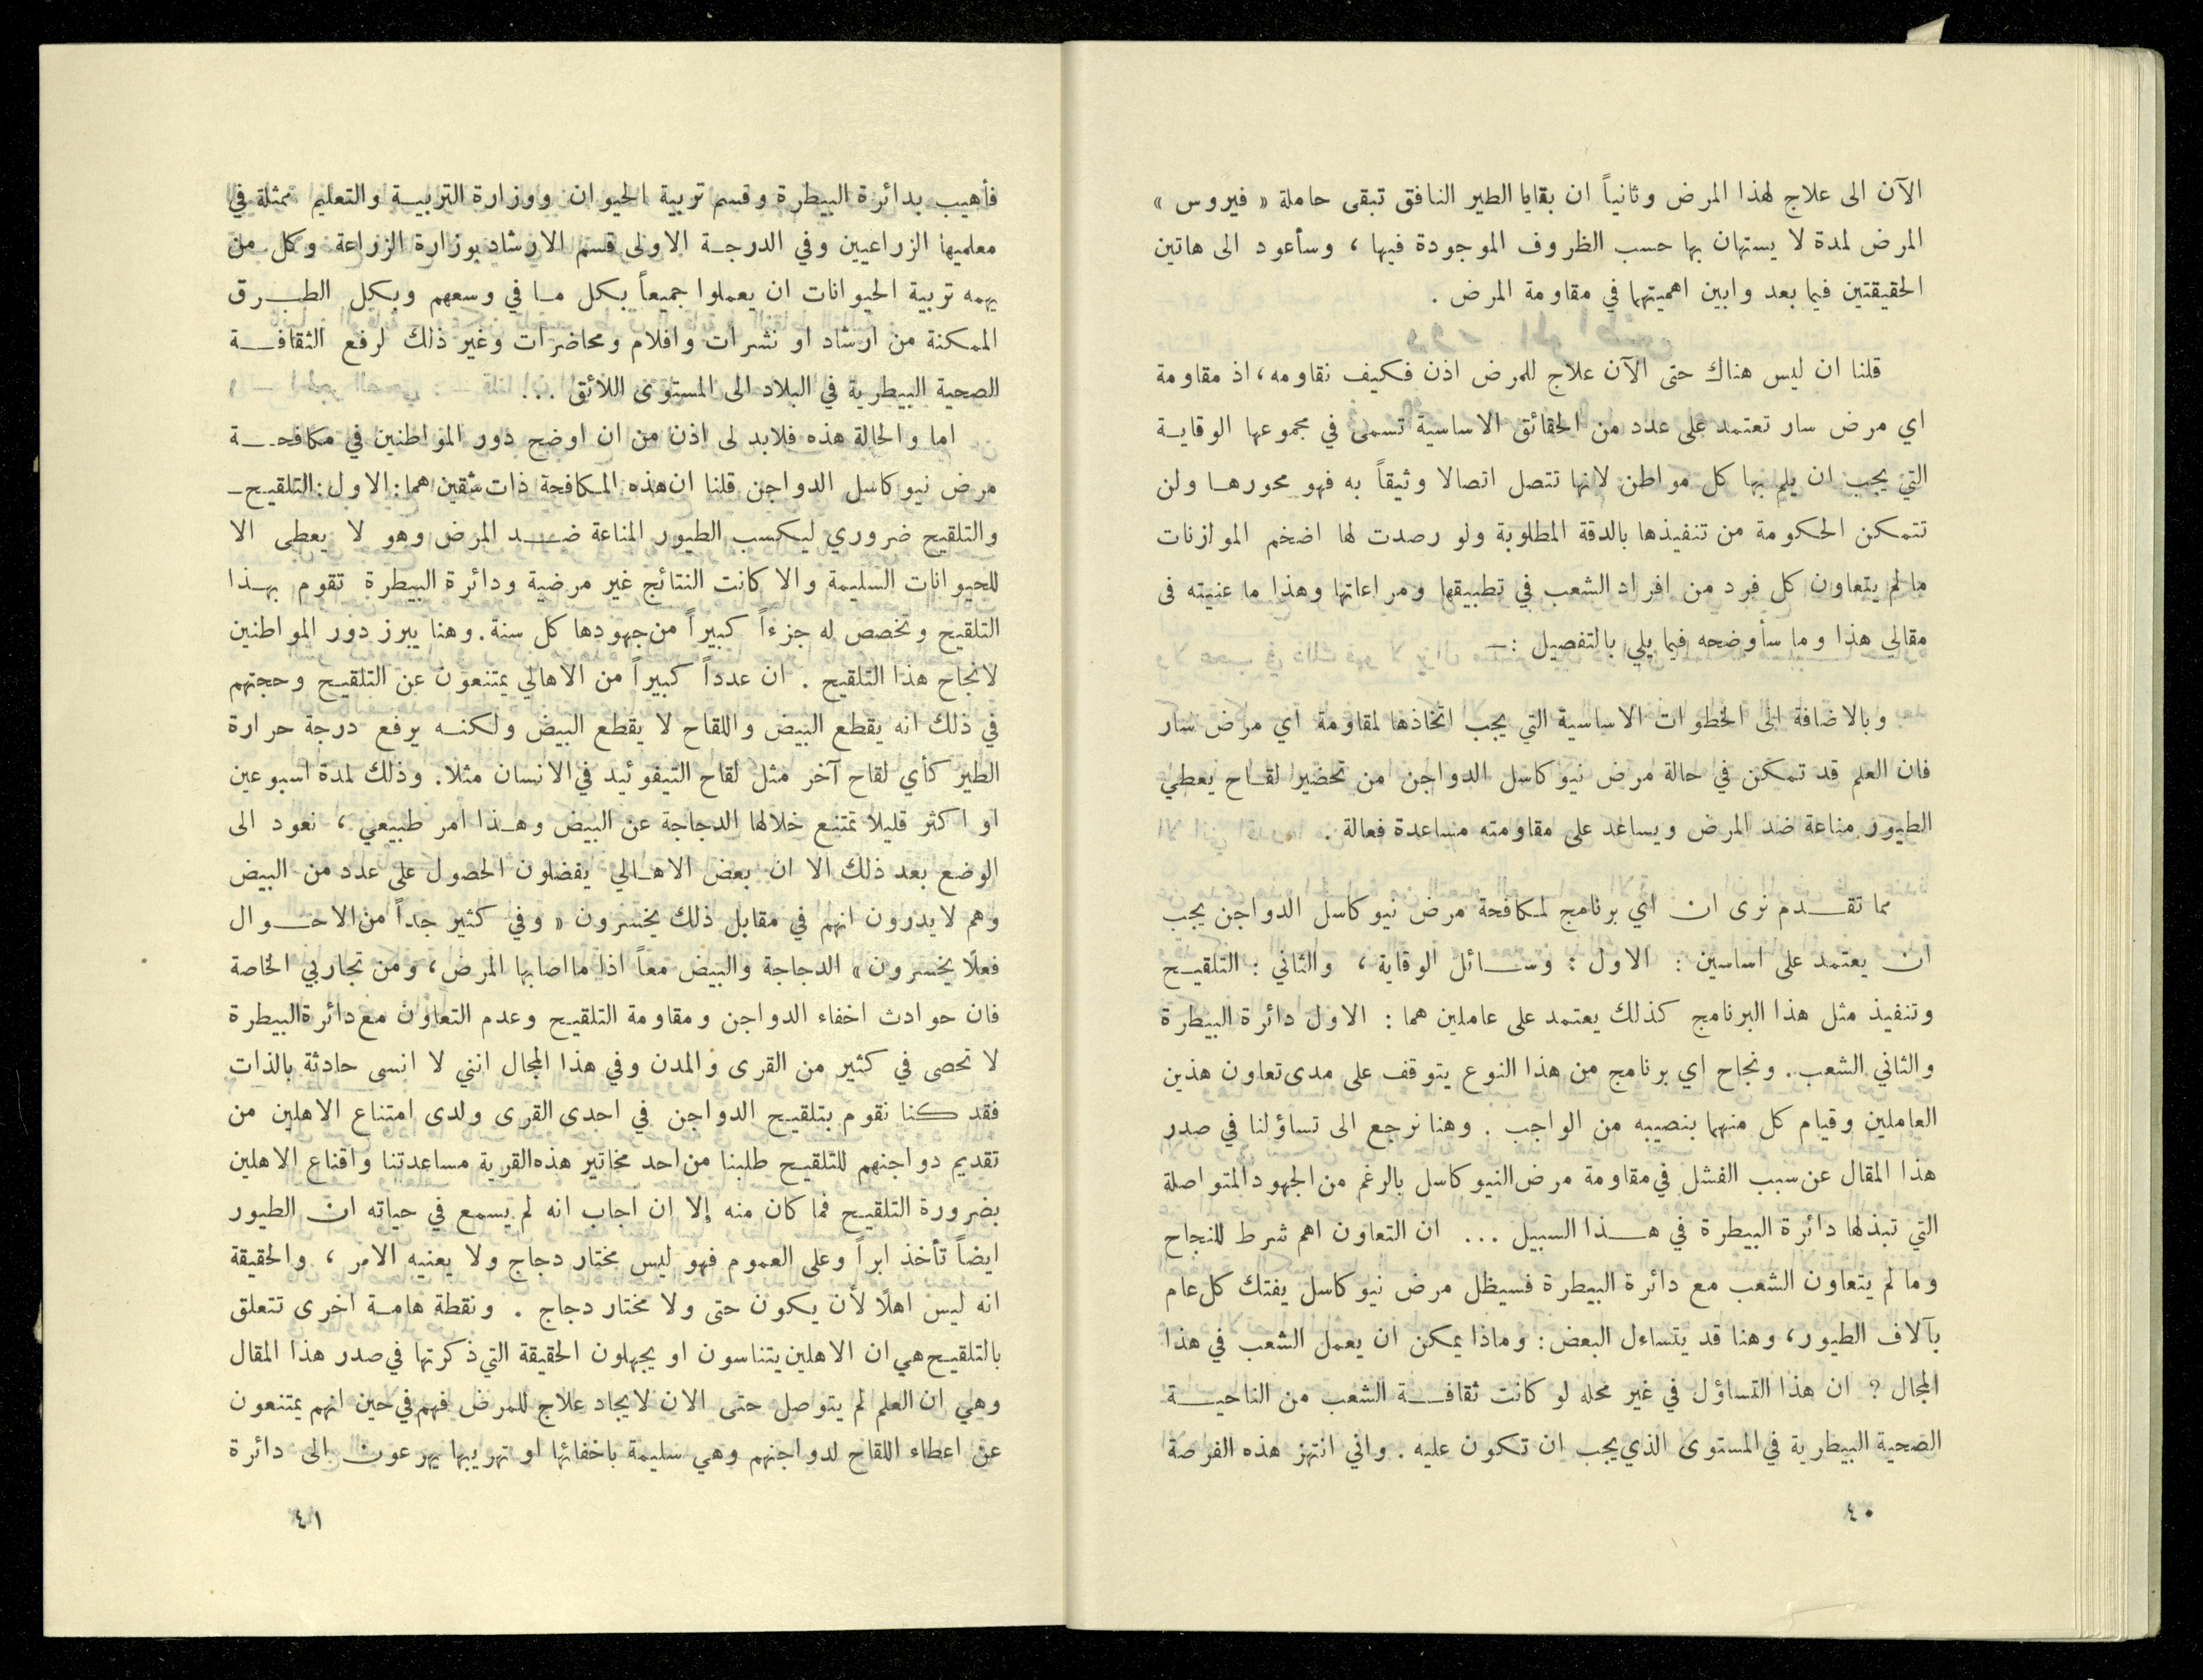 الآن الى علاج لهذا المرض وثانياً ان بقايا الطير النافق تبقى حاملة « فيروس »
المرض لمدة لا يستهان بها حسب الظروف الموجودة فيها ، وسأعود الى هاتين
الحقيقتين فيما بعد وابين اهميتهما في مقاومة المرض .
قلنا ان ليس هناك حتى الآن علاج للمرض اذن فكيف نقاومه ، اذ مقاومة
اي مرض سار تعتمد على عدد من الحقائق الاساسية تسمى في مجموعها الوقاية
التي يجب ان يلم بها كل مواطن لانها تتصل اتصالا وثيقاً به فهو محورها ولن
تتمكن الحكومة من تنفيذها بالدقة المطلوبة ولو رصدت لها اضخم الموازنات
ما لم يتعاون كل فرد من افراد الشعب في تطبيقها ومراعاتها وهذا ما عنيته فى
مقالي هذا وما سأوضحه فيما يلي بالتفصيل : ـ
وبالاضافة الى الخطوات الاساسية التي يجب اتخاذها لمقاومة اي مرض سار
فان العلم قد تمكن في حالة مرض نيوكاسل الدواجن من تحضير لقاح يعطي
الطيور مناعة ضد المرض ويساعد على مقاومته مساعدة فعالة .
مما تقدم نرى ان اي برنامج لمكافحة مرض نيوكاسل الدواجن يجب
ان يعتمد على اساسين : الاول : وسائل الوقاية ، والثاني : التلقيح
وتنفيذ مثل هذا البرنامج كذلك يعتمد على عاملين هما : الاول دائرة البيطرة
والثاني الشعب . ونجاح اي برنامج من هذا النوع يتوقف على مدى تعاون هذين
العاملين وقيام كل منهما بنصيبه من الواجب . وهنا نرجع الى تساؤلنا في صدر
هذا المقال عن سبب الفشل في مقاومة مرض النيوكاسل بالرغم من الجهود المتواصلة
التي تبذلها دائرة البيطرة في هذا السبيل ... ان التعاون اهم شرط للنجاح
وما لم يتعاون الشعب مع دائرة البيطرة فسيظل مرض نيوكاسل يفتك كل عام
بآلاف الطيور ، وهنا قد يتساءل البعض : وماذا يمكن ان يعمل الشعب في هذا
المجال ? ان هذا التساؤل في غير محله لو كانت ثقافة الشعب من الناحية
الصحية البيطرية في المستوى الذي يجب ان تكون عليه . واني انتهز هذه الفرصة
٤٠
فأهيب بدائرة البيطرة وقسم تربية الحيوان ووزارة التربية والتعليم ممثلة في
معلميها الزراعيين وفي الدرجة الاولى قسم الارشاد بوزارة الزراعة وكل من
يهمه تربية الحيوانات ان يعملوا جميعاً بكل ما في وسعهم وبكل الطرق
الممكنة من ارشاد او نشرات وافلام ومحاضرات وغير ذلك لرفع الثقافة
الصحية البيطرية في البلاد الى المستوى اللائق ...
اما والحالة هذه فلابد لى اذن من ان اوضح دور المواطنين في مكافحة
مرض نيوكاسل الدواجن قلنا ان هذه المكافحة ذات شقين هما : الاول : التلقيح ـ
والتلقيح ضروري ليكسب الطيور المناعة ضد المرض وهو لا يعطى الا
للحيوانات السليمة والا كانت النتائج غير مرضية ودائرة البيطرة تقوم بهذا
التلقيح وتخصص له جزءاً كبيراً من جهودها كل سنة . وهنا يبرز دور المواطنين
لانجاح هذا التلقيح . ان عدداً كبيراً من الاهالي يمتنعون عن التلقيح وحجتهم
في ذلك انه يقطع البيض واللقاح لا يقطع البيض ولكنه يرفع درجة حرارة
الطير كأي لقاح آخر مثل لقاح التيفوئيد في الانسان مثلا . وذلك لمدة اسبوعين
او اكثر قليلا تمتنع خلالها الدجاجة عن البيض وهذا امر طبيعي ، نعود الى
الوضع بعد ذلك الا ان بعض الاهالي يفضلون الحصول على عدد من البيض
وهم لا يدرون انهم في مقابل ذلك يخسرون « وفي كثير جداً من الاحوال
فعلا يخسرون » الدجاجة والبيض معاً اذا ما اصابها المرض ، ومن تجاربي الخاصة
فان حوادث اخفاء الدواجن ومقاومة التلقيح وعدم التعاون مع دائرة البيطرة
لا تحصى في كثير من القرى والمدن وفي هذا المجال انني لا انسى حادثة بالذات
فقد كنا نقوم بتلقيح الدواجن في احدى القرى ولدى امتناع الاهلين من
تقديم دواجنهم للتلقيح طلبنا من احد مخاتير هذه القرية مساعدتنا واقناع الاهلين
بضرورة التلقيح فما كان منه إلا ان اجاب انه لم يسمع في حياته ان الطيور
ايضاً تأخذ ابراً وعلى العموم فهو ليس مختار دجاج ولا يعنيه الامر ، والحقيقة
انه ليس اهلا لأن يكون حتى ولا مختار دجاج . ونقطة هامة اخرى تتعلق
بالتلقيح هي ان الاهلين يتناسون او يجهلون الحقيقة التي ذكرتها في صدر هذا المقال
وهي ان العلم لم يتوصل حتى الان لايجاد علاج للمرض فهم في حين انهم يمتنعون
عن اعطاء اللقاح لدواجنهم وهي سليمة باخفائها او تهريبها يهرعون الى دائرة
٤١